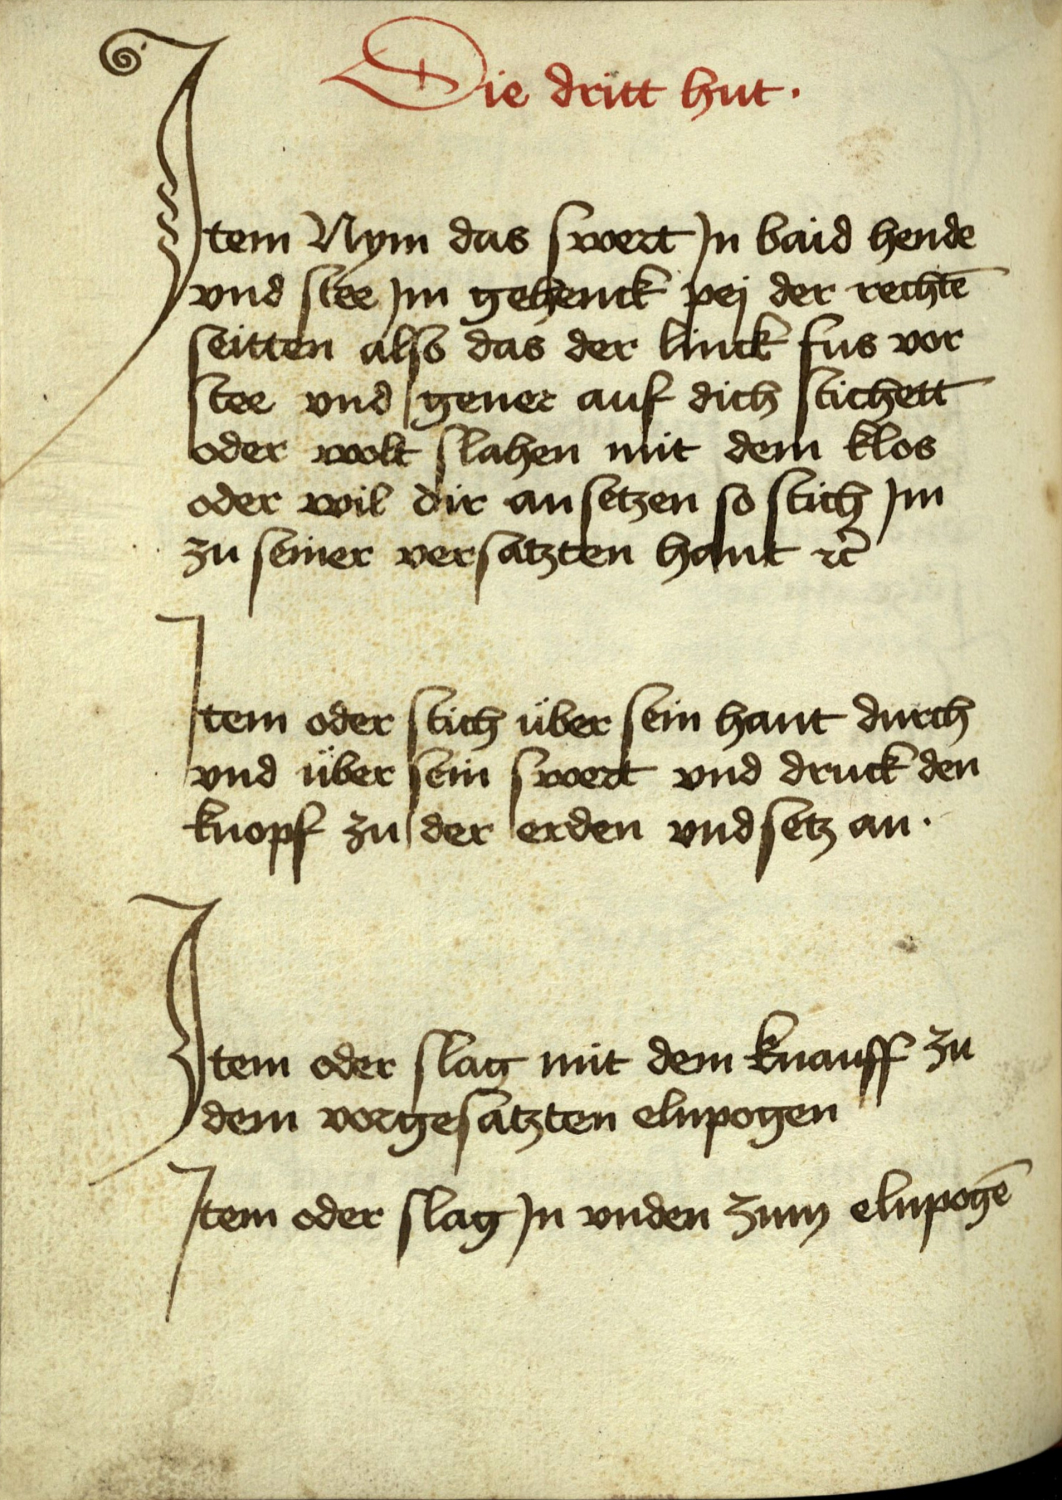 Die dritt hut ·
Item Nym das swert Jn baid hende
vnd stee Jm gehenck pej der rechtē
seitten also das der linck fus vor
stee vnd gener auf dich stichett
oder wolt slahen mit dem klos
oder wil dir an setzen so stich Jm
zu seiner versatzten hant ⁊c̄
Item oder stich über sein hant durch
vnd über sein swert vnd druck den
knopf zu der erden vnd setz an ·
Item oder slag mit dem knauff zu
dem vorgesatzten elnpogen
Item oder slag Jn vnden zum elnpogē